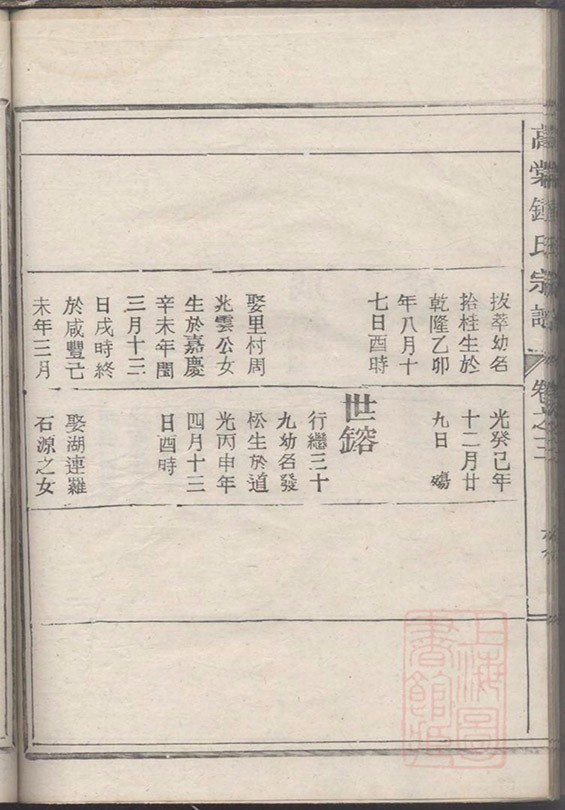 鍾氏宗譜
卷之三
拔萃幼名
拾桂生於
乾隆乙卯
年八月十
七日酉時
娶里村周
兆雲公女
生於嘉慶
辛未年閏
三月十三
日戌時終
於咸豐己
未年三月
光癸巳年
十二月廿
九日殤
世鎔
行繼三十
九幼名發
松生於道
光丙申年
四月十三
日酉時
娶湖連羅
石源之女
上海圖
書館藏